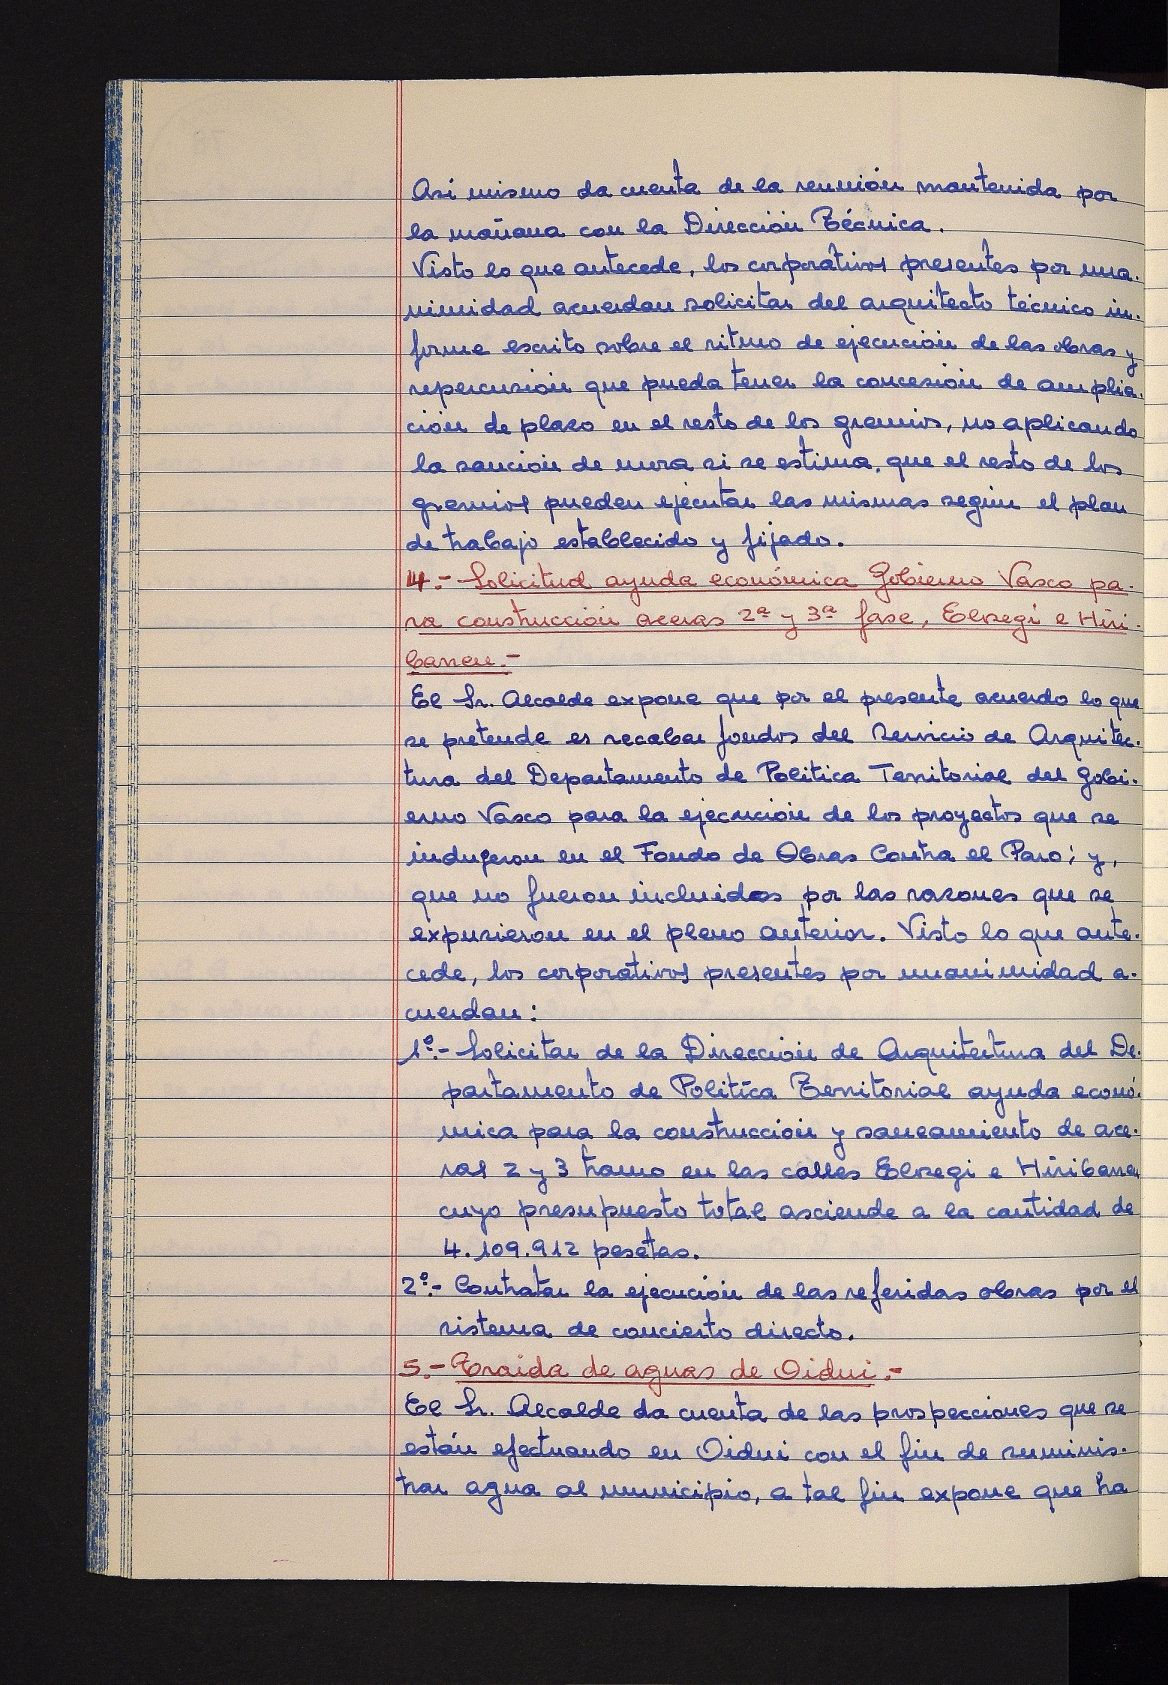 Asi mismo da cuenta de la reunión mantenida por
la mañana con la Dirección Técnica.
Visto lo que antecede, los corporativos presentes por una-
nimidad acuerdan solicitar del arquitecto técnico in-
forme escrito sobre el ritmo de ejecución de las obras y
repercusión que pueda tener la concesión de amplia-
ción de plazo en el resto de los gremios, no aplicando
la sanción de mora si se estima, que el resto de los
gremios pueden ejecutar las mismas según el plan
de trabajo establecido y fijado.
4.- Solicitud ayuda económica Gobierno Vasco pa-
ra construcción aceras 2ª y 3ª fase, Elizegi e Hiri-
barren.-
El Sr. Alcalde expone que por el presente acuerdo lo que
se pretende es recabar fondos del Servicio de Arquitec-
tura del Departamento de Politica Territorial del Gobi-
erno Vasco para la ejecución de los proyectos que se
indugeron en el Fondo de Obras Contra el Paro; y,
que no fueron incluidos por las razones que se
expusieron en el pleno anterior. Visto lo que ante-
cede, los corporativos presentes por unanimidad a-
cuerdan:
1º.- Solicitar de la Dirección de Arquitectura del De-
partamento de Politíca Territorial ayuda econó-
mica para la construcción y saneamiento de ace-
ras 2 y 3 tramo en las calles Elizegi e Hiribarren
cuyo presupuesto total asciende a la cantidad de
4.109.912 pesetas.
2º.- Contratar la ejecución de las referidas obras por el
sistema de concierto directo.
5.- Traida de aguas de Oidui.-
El Sr. Alcalde da cuenta de las prospecciones que se
están efectuando en Oidui con el fin de suminis-
trar agua al municipio, a tal fin expone que ha